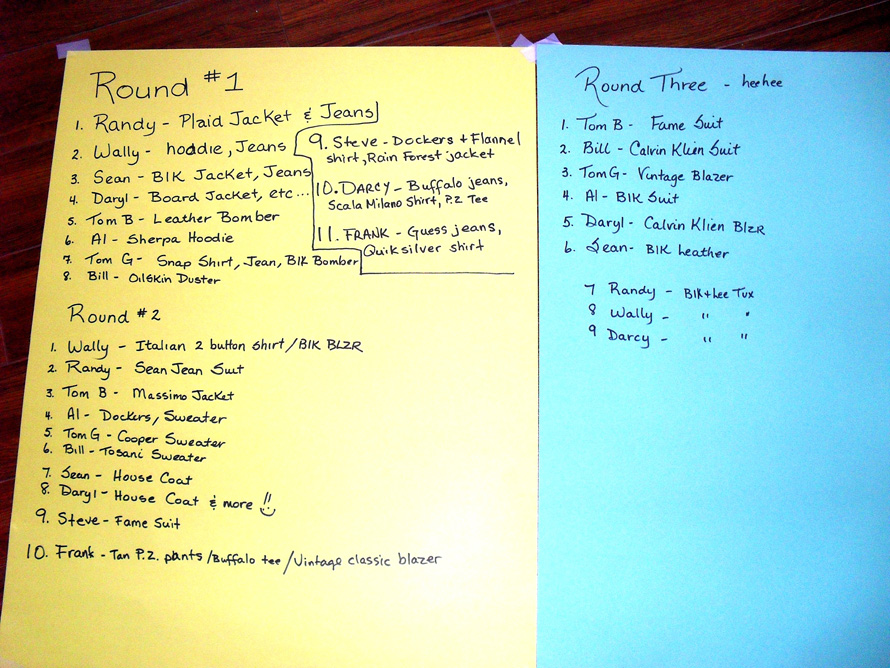 Round #1
1. Randy - Plaid Jacket & Jeans
2. Wally - hoodie, Jeans
3. Sean - Blk Jacket, Jeans
4. Daryl - Board Jacket, etc...
5. Tom B - Leather Bomber
6. Al - Sherpa Hoodie
7. Tom G - Snap Shirt, Jean, Blk Bomber
8. Bill - Oilskin Duster
9. Steve - Dockers + Flannel
shirt, Rain Forest jacket
10. DARCY - Buffalo jeans,
Scala Milano Shirt, P.Z Tee
11. FRANK - Guess jeans,
Quiksilver shirt
Round #2
1. Wally - Italian 2 button shirt/Blk BLZR
2. Randy - Sean Jean Suit
3. Tom B - Massimo Jacket
4. Al - Dockers, Sweater
5. Tom G - Cooper Sweater
6. Bill - Tosani Sweater
7. Sean - House Coat
8. Daryl - House Coat & more !!
9. Steve - Fame Suit
10. Frank - Tan P.Z. pants/Buffalo tee/Vintage classic blazer
Round Three - heehee
1. Tom B - Fame Suit
2. Bill - Calvin Klien Suit
3. Tom G - Vintage Blazer
4. Al - Blk Suit
5. Daryl - Calvin Klien Blzr
6. Sean - Blk leather
7 Randy - Blk + Lee Tux
8 Wally - " "
9 Darcy - " "